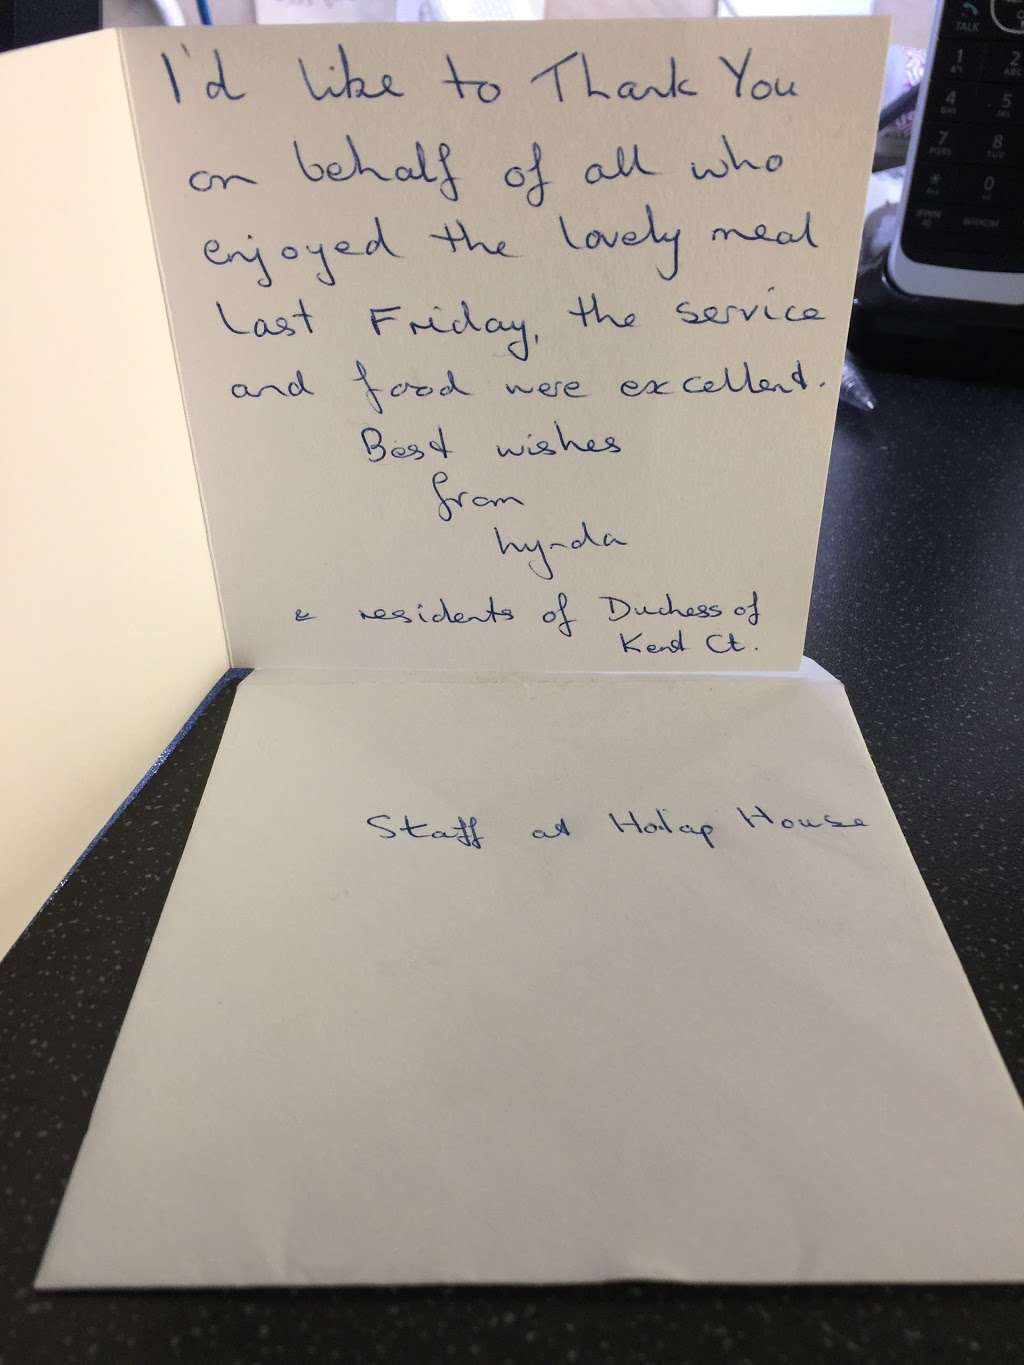 I'd like to Thank You
on behalf of all who
enjoyed the lovely meal
last Friday, the service
and food were excellent.
Best wishes
from
Lynda
& residents of Duchess of
Kent Ct.
Staff at House
TALK
1
2
ABC
4
5
7
PQRS
8
TUV
*
0